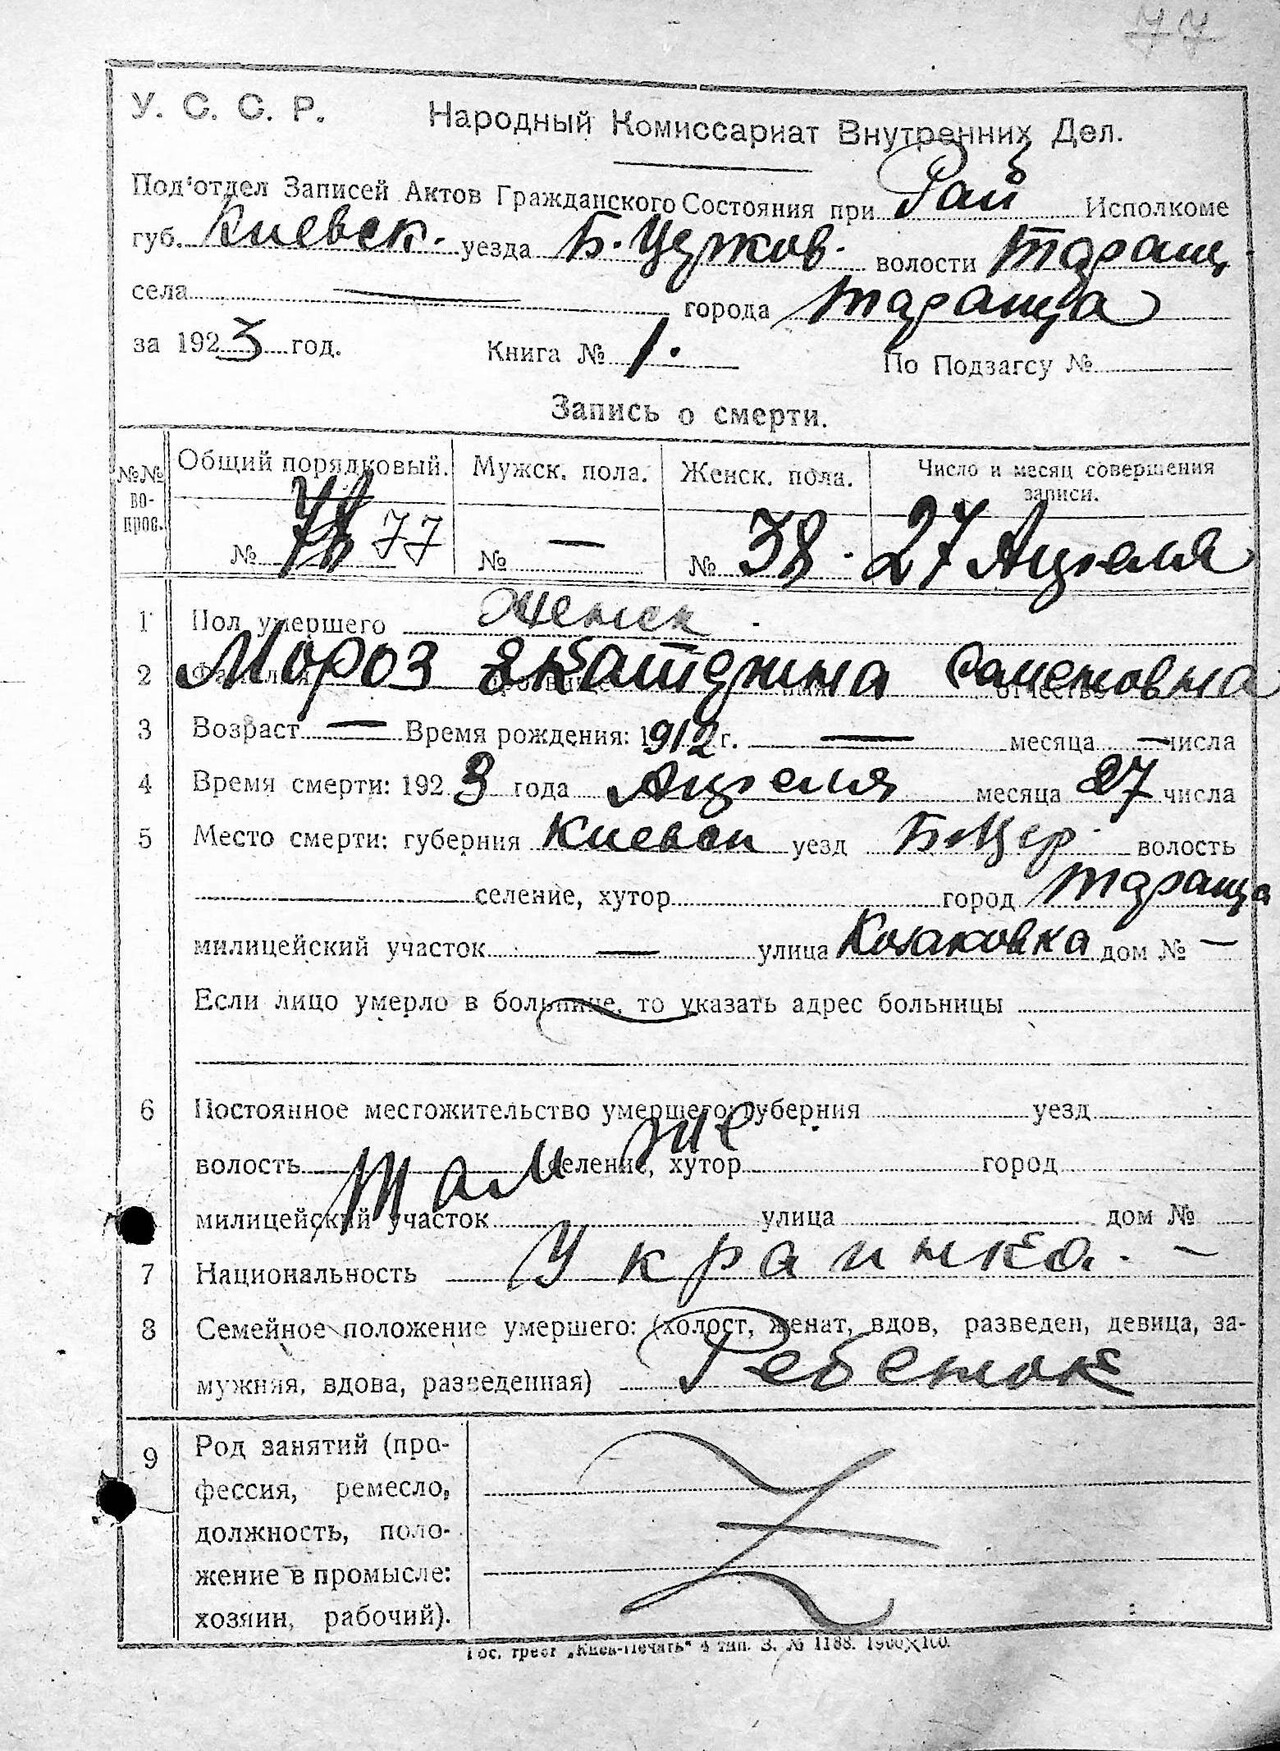 77
У. С. С. Р. Народный Комиссариат Внутренних Дел.
Под'отдел Записей Актов Гражданского Состояния при Рай Исполкоме
губ. Киевск. уезда Б. Церков. волости Таращ
села — города Тараща
за 1923 год. Книга № 1. По Подзагсу №
Запись о смерти.
№№ вопрос. Общий порядковый. Мужск. пола. Женск. пола. Число и месяц совершения записи.
№ 78 77 № — № 38. 27 Апреля
1 Пол умершего Женск.
2 Мороз Екатерина Семеновна
3 Возраст — Время рождения: 1912 г. — месяца — числа
4 Время смерти: 1923 года Апреля месяца 27 числа
5 Место смерти: губерния Киевск уезд Б-Цер. волость
селение, хутор город Тараща
милицейский участок — улица Козаковка дом № —
Если лицо умерло в больнице, то указать адрес больницы
6 Постоянное местожительство умершего: губерния уезд
волость селение, хутор город
Там же
милицейский участок улица дом № —
7 Национальность Украинка.
8 Семейное положение умершего: (холост, женат, вдов, разведен, девица, за-
мужняя, вдова, разведенная) Ребенок
9 Род занятий (про-
фессия, ремесло,
должность, поло-
жение в промысле:
хозяин, рабочий).
Гос. трест „Киев-Печать" 4 тип. З. № 1188. 1900×100.